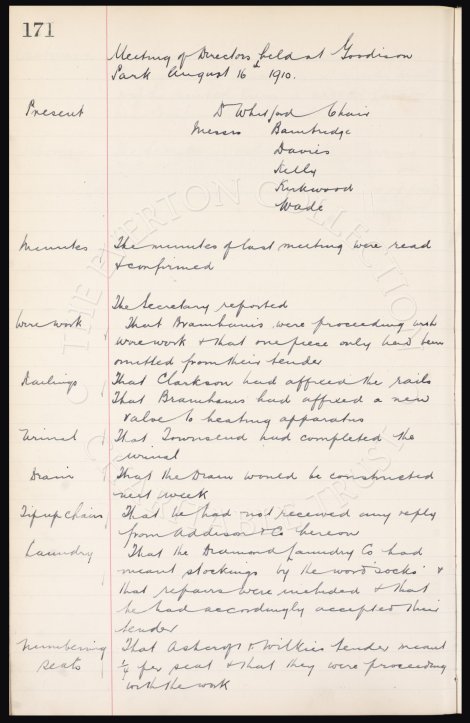 171
Meeting of Directors held at Goodison
Park August 16th 1910.
Present D Whitford Chair
Messrs Bainbridge
Davies
Kelly
Kirkwood
Wade
Minutes The minutes of last meeting were read
& confirmed
The Secretary reported
Wire work That Bramhams were proceeding with
wire work & that one piece only had been
omitted from their tender
Railings That Clarkson had affixed the rails
That Bramhams had affixed a new
valve to heating apparatus
Urinal That Townsend had completed the
urinal
Drain That the Drain would be constructed
next week
Tip up chairs That he had not received any reply
from Addison & Co thereon
Laundry That the Diamond Laundry Co had
meant stockings by the word "socks" &
that repairs were included & that
he had accordingly accepted their
tender
Numbering That Ashcroft & Wilkies tender meant
seats per seat & that they were proceeding
with the work
THE EVERTON COLLECTION
CHARITABLE TRUST